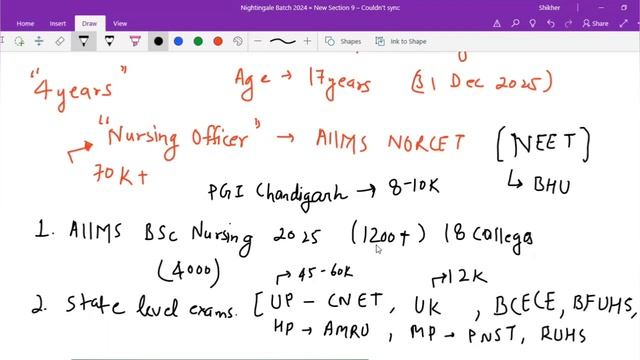 Nightingale Batch 2024 » New Section 9 – Couldn't sync
Shikher
File Home Insert Draw View
Shapes Ink to Shape
"4 years" Age → 17 years (31 Dec 2025)
"Nursing Officer" → AIIMS NORCET [NEET]
70K+ ↳ BHU
PGI Chandigarh → 8-10K
1. AIIMS BSc Nursing 2025 (1200+) 18 Colleges
(4000) → 45-60K → 12K
2. State level exams. [UP - CNET, UK, BCECE, BFUHS,
HP → AMRU, MP → PNST, RUHS